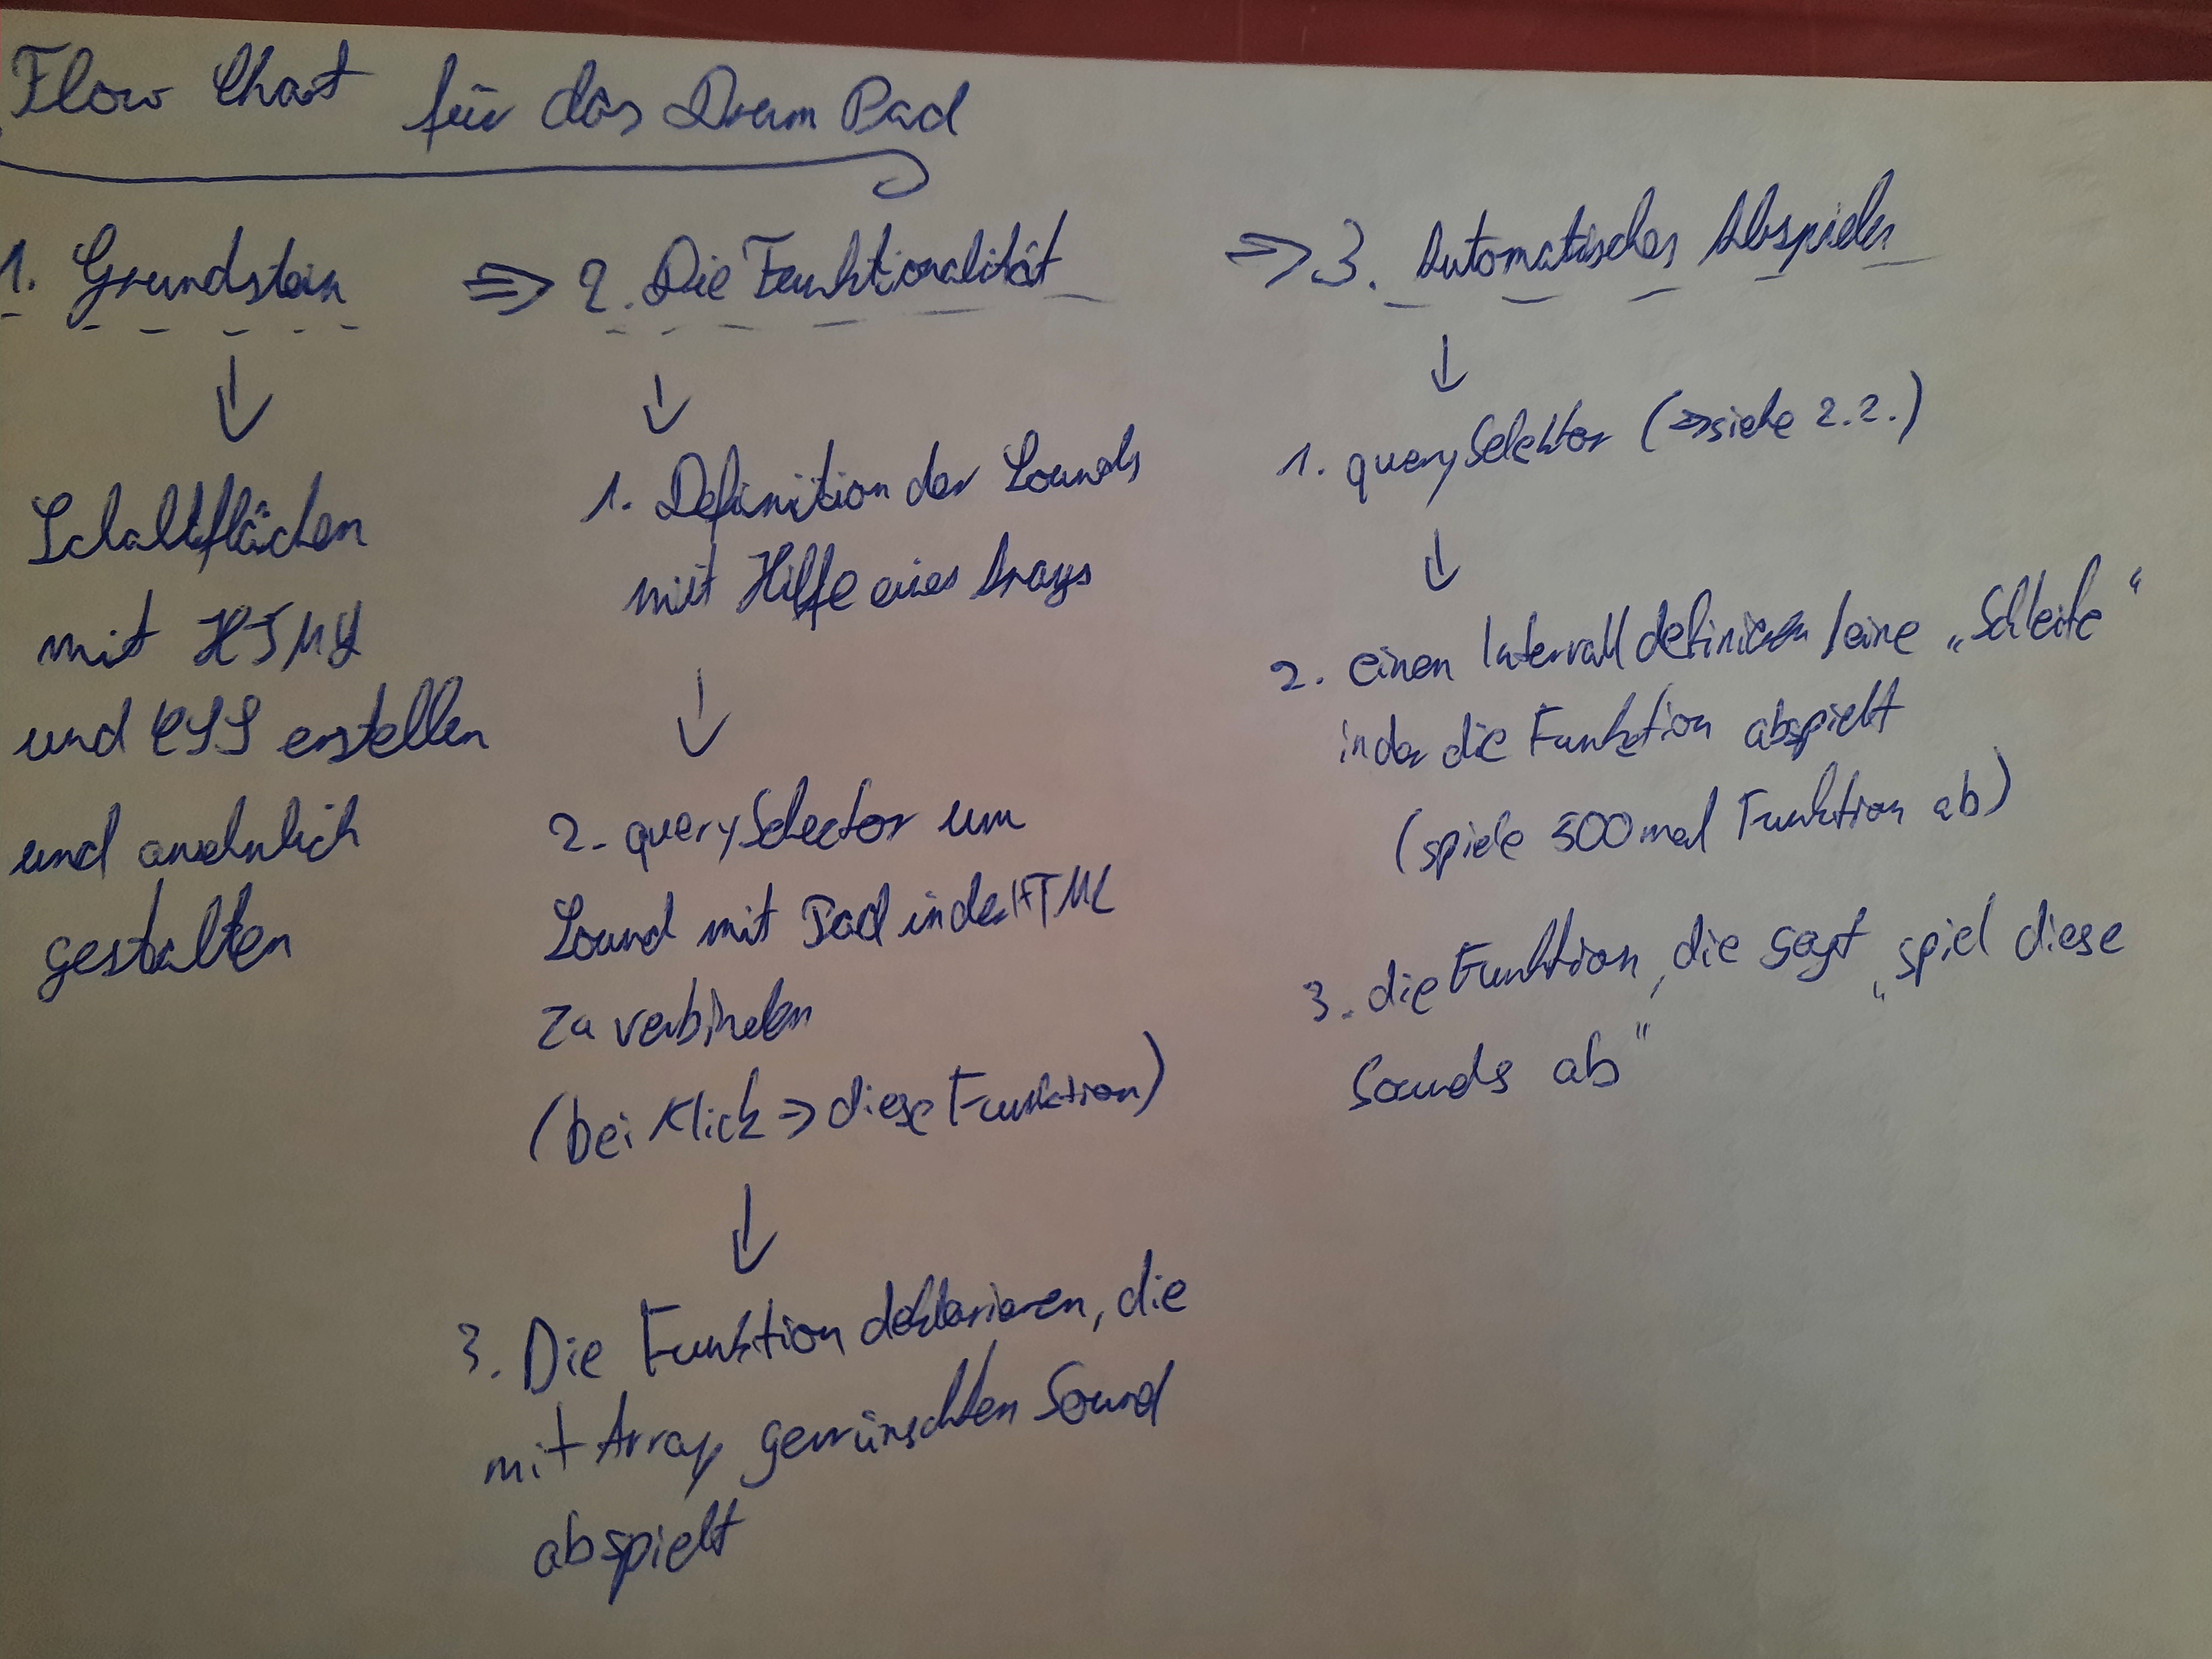 Flow Chart für das Drum Pad
1. Grundstein
⇒ 2. Die Funktionalität
⇒ 3. Automatisches Abspielen
↓
Schaltflächen
mit HTML
und CSS erstellen
und ansehnlich
gestalten
↓
1. Definition der Sounds
mit Hilfe eines Arrays
↓
2. querySelector um
Sound mit Pad in der HTML
zu verbinden
(bei Klick ⇒ diese Funktion)
↓
3. Die Funktion deklarieren, die
mit Array gewünschten Sound
abspielt
↓
1. querySelektor (⇒ siehe 2.2.)
↓
2. einen Intervall definieren / eine „Schleife"
in der die Funktion abspielt
(spiele 500 mal Funktion ab)
3. die Funktion, die sagt „spiel diese
Sounds ab"